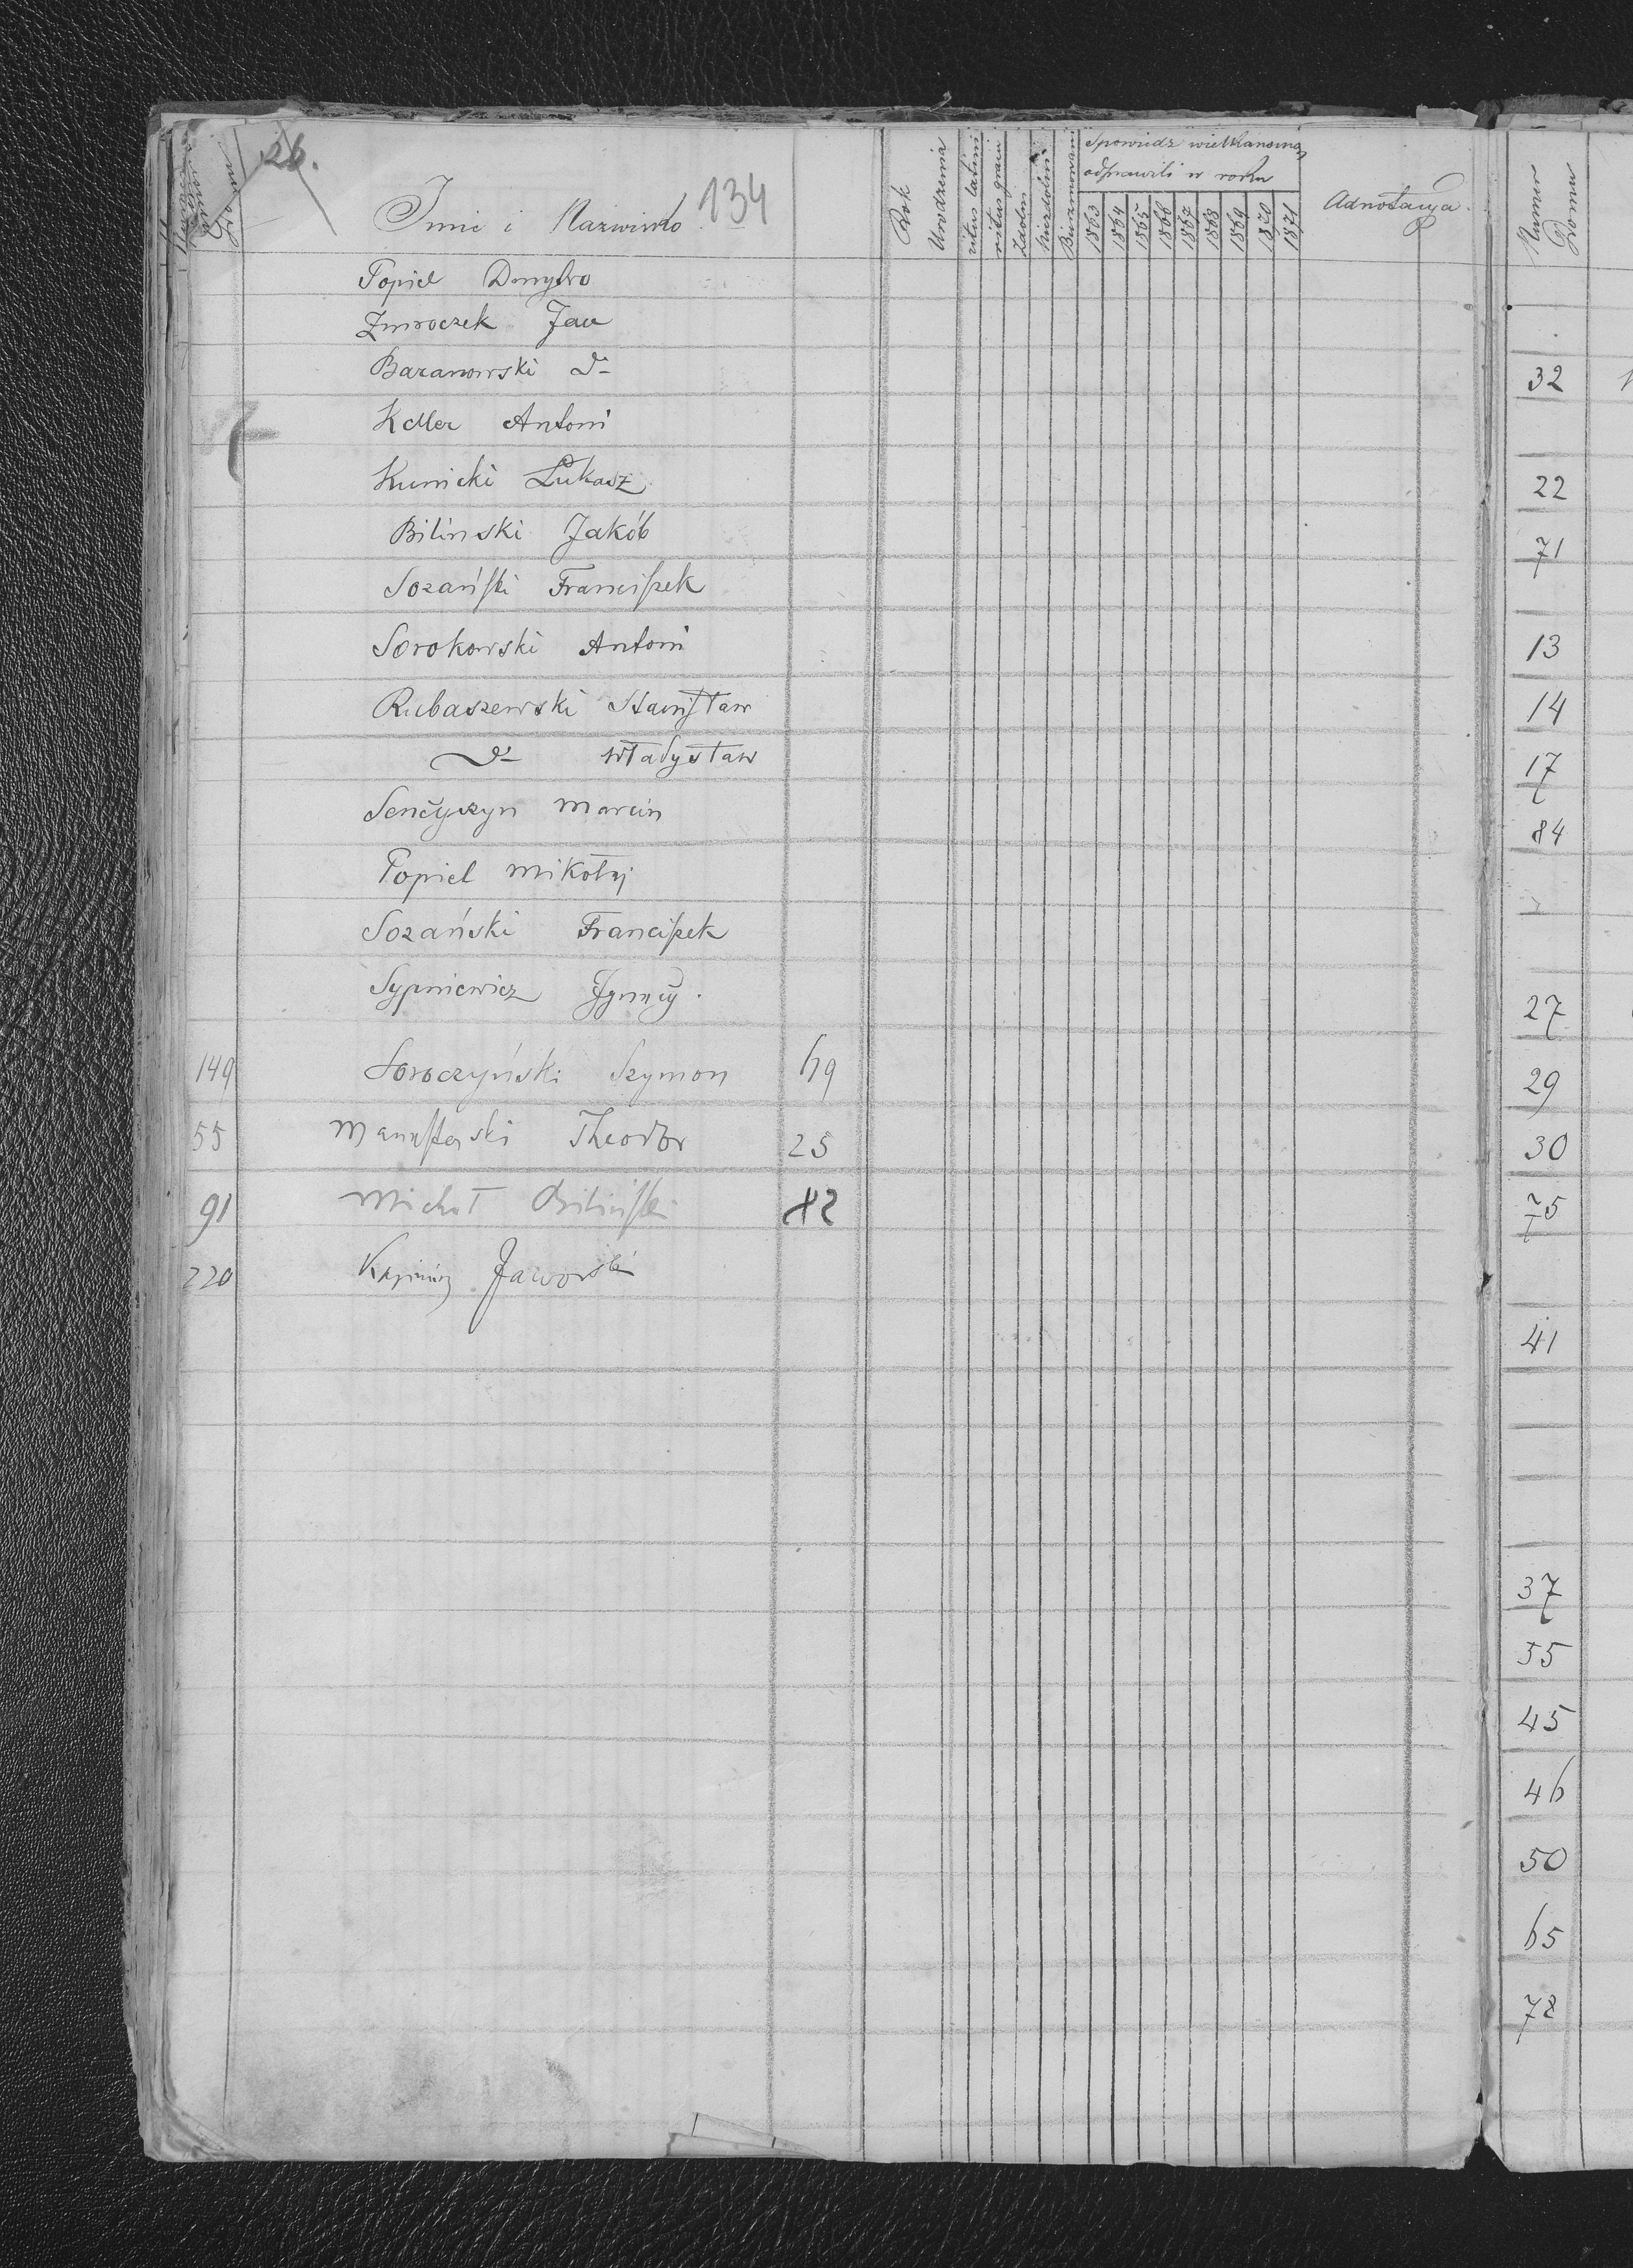 26.
134
Imie i Nazwisko
Rok Urodzenia
ritus latini
ritus graeci
Bierzmowani
Spowiedz wielkanocną
odprawili w roku
1863 1864 1865 1866 1867 1868 1869 1870 1871
Adnotacya
Numer Domu
Popiel Dmytro
Zmroczek Jan
Baranowski d-
Keller Antoni
Kunicki Łukasz
Bilinski Jakób
Sozański Franciszek
Sorokowski Antoni
Rubaszewski Stanisław
d- Władysław
Senczyszyn Marcin
Popiel Mikołaj
Sozański Franciszek
Sypniewicz Ignacy.
149 Soroczyński Szymon 69
55 Theodor 25
91 Michał Biliński 82
220 Kazimirz Jaworski
32
22
71
13
14
17
84
27
29
30
75
41
37
55
45
46
50
65
78